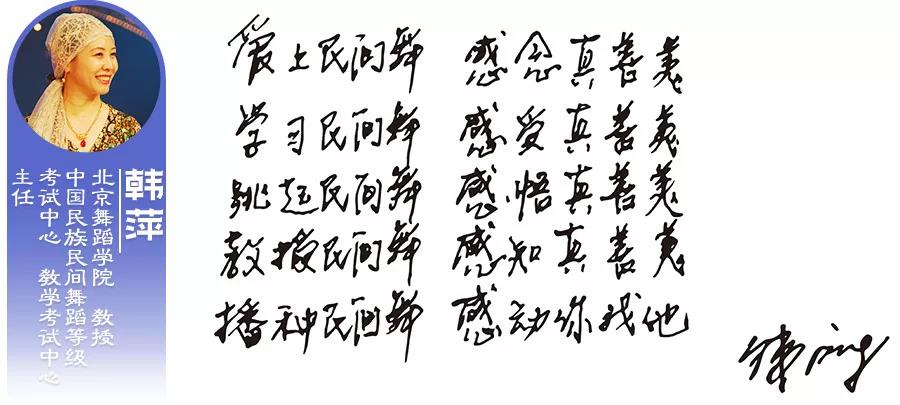 韩萍
北京舞蹈学院 教授
中国民族民间舞蹈等级
考试中心 教学考试中心
主任
爱上民间舞 感念真善美
学习民间舞 感受真善美
跳起民间舞 感悟真善美
教授民间舞 感知真善美
播种民间舞 感动你我他
韩萍